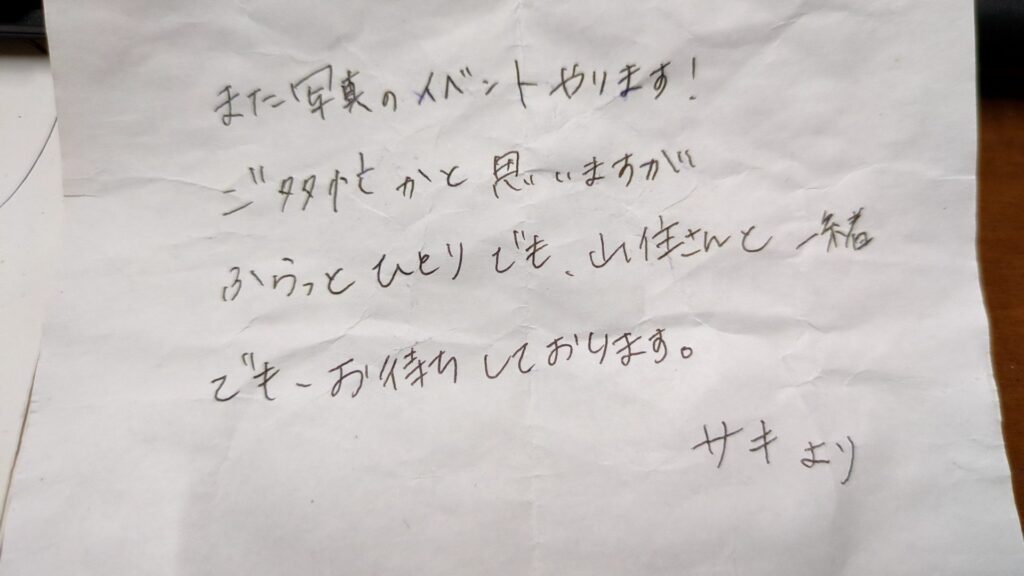 また写真のイベントやります!
ご多忙かと思いますが
ふらっとひとりでも、山住さんと一緒
でも、お待ちしております。
サキより